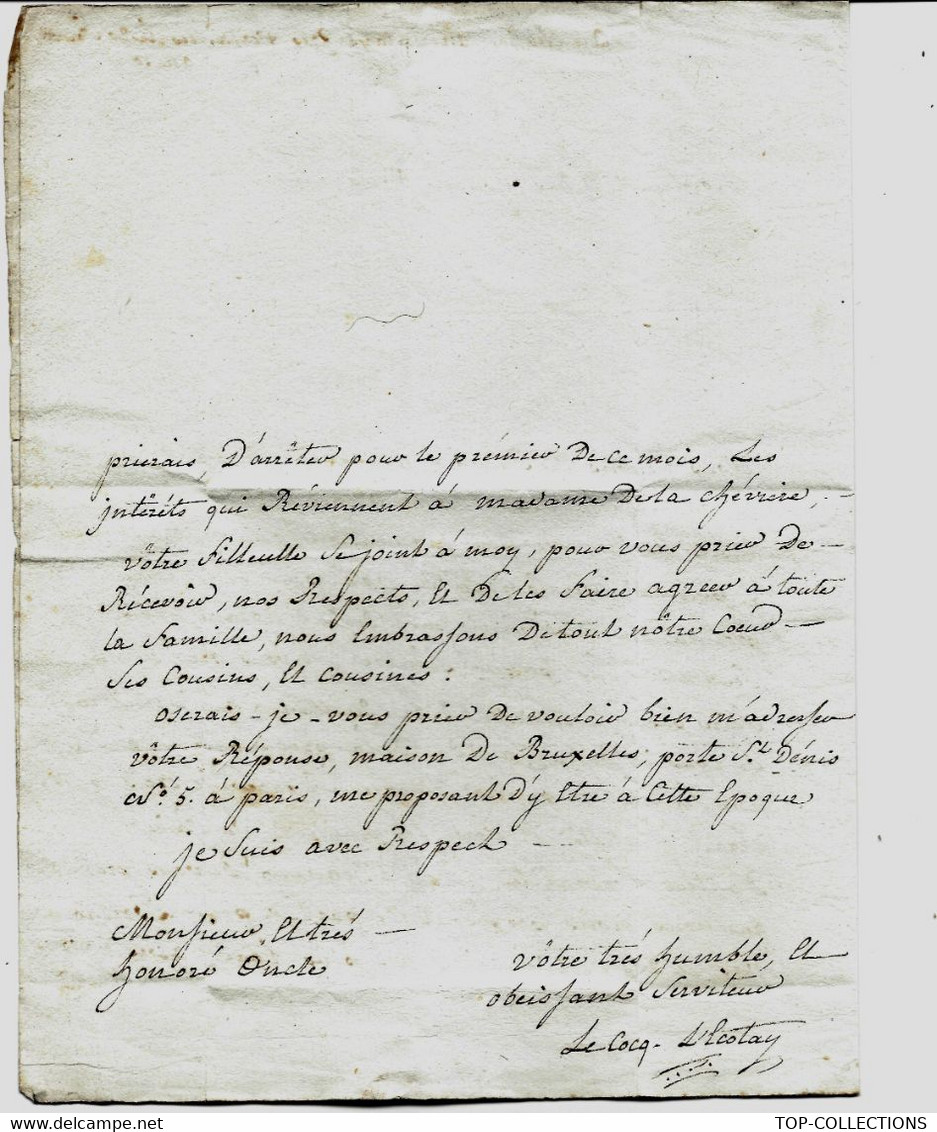 prierais, D'arrêter pour le prémier De ce mois, Les
jntêréts qui Réviennent á madame De la chévriere, -
vôtre filleulle Se joint á moy, pour vous prier De -
Récevoir, nos Respects, Et De les faire agreer á toute
la famille, nous Embrassons De tout nôtre Coeur -
Ses Cousins, Et Cousines :
oserais - je - vous prier De vouloir bien m'adresser
vôtre Réponse, maison De Bruxelles, porte St. Dénis
No. 5. á paris, me proposant D'y Etre á Cette Epoque
je Suis avec Respect -
Monsieur, Et trés -
honoré Oncle
vôtre trés humble, Et
obeissant Serviteur
Le Cocq - L'Ecotay
TOP-COLLECTIONS